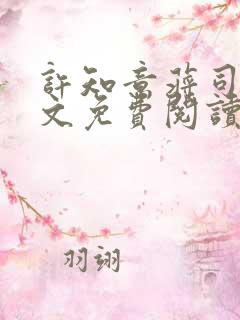 許知意蔣司
文免費閱讀
羽翊